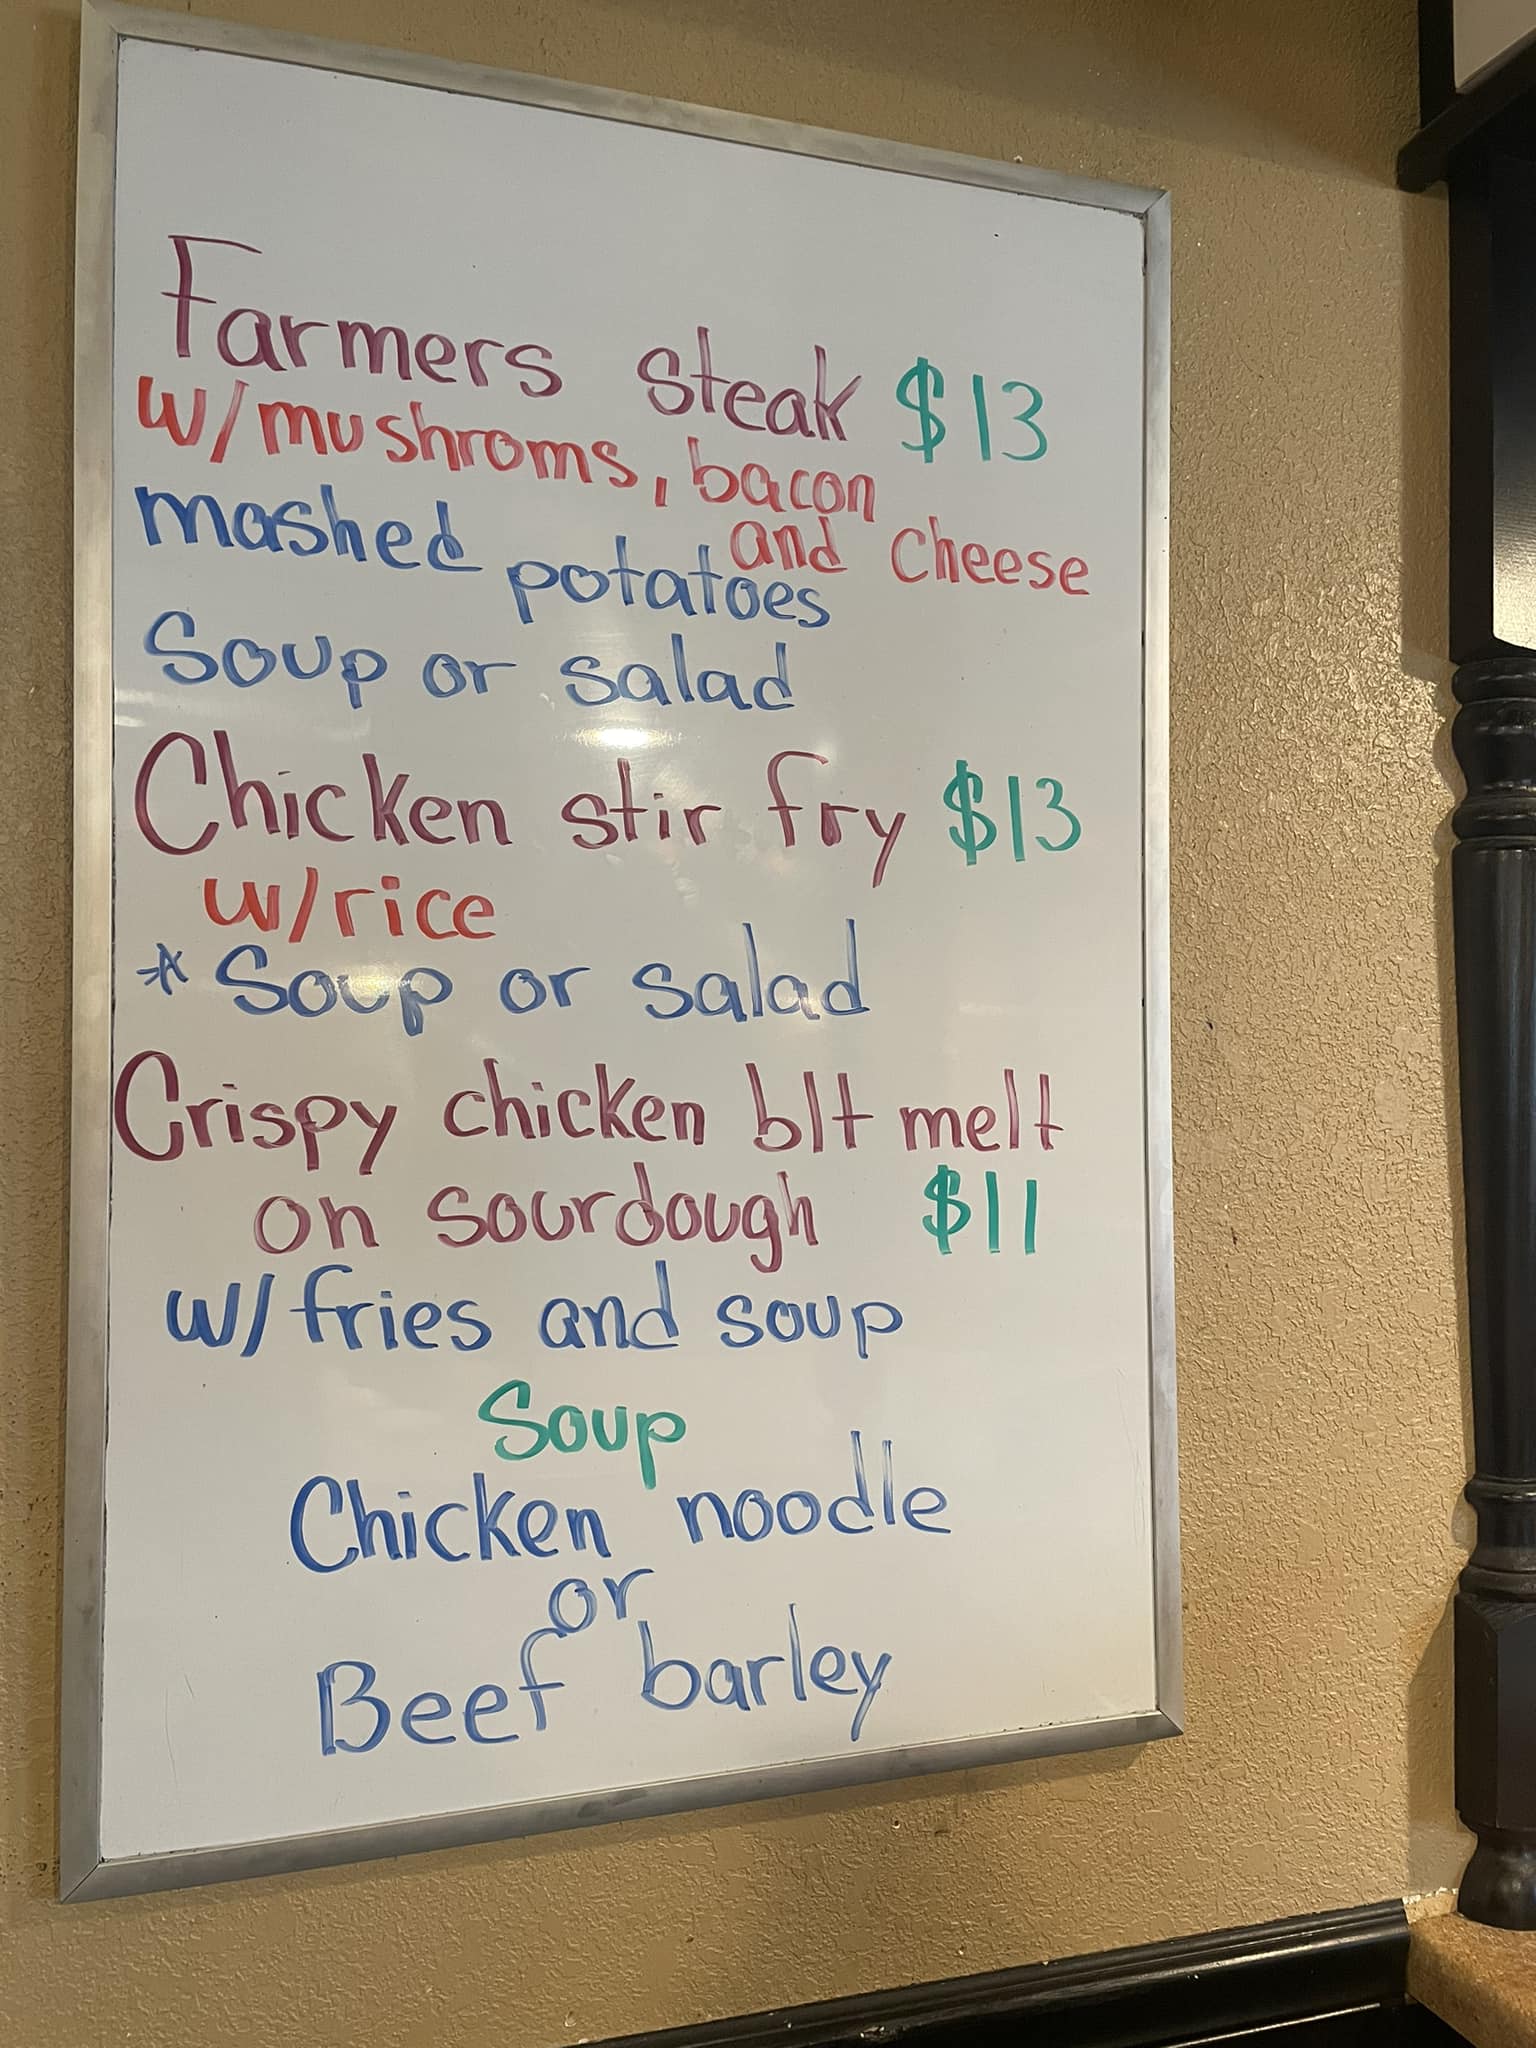 Farmers steak $13
w/mushroms, bacon
and cheese
mashed potatoes
Soup or salad
Chicken stir fry $13
w/rice
* Soup or salad
Crispy chicken blt melt
on sourdough $11
w/fries and soup
Soup
Chicken noodle
or
Beef barley